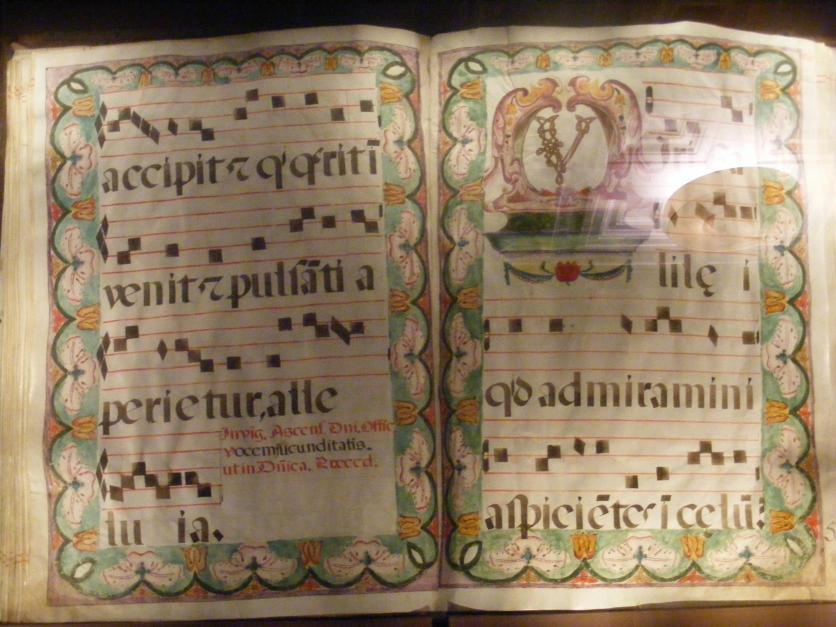 accipit ⁊ q' q'rit ī
venit ⁊ pulſāti a
perietur, alle
Invig. Ascenſ. Dni. Offic
vocem jucunditatis.
ut in Dñica. Præced.
lu ia.
V
lilę i
qd admiramini
aſpiciētes ī cęlū?